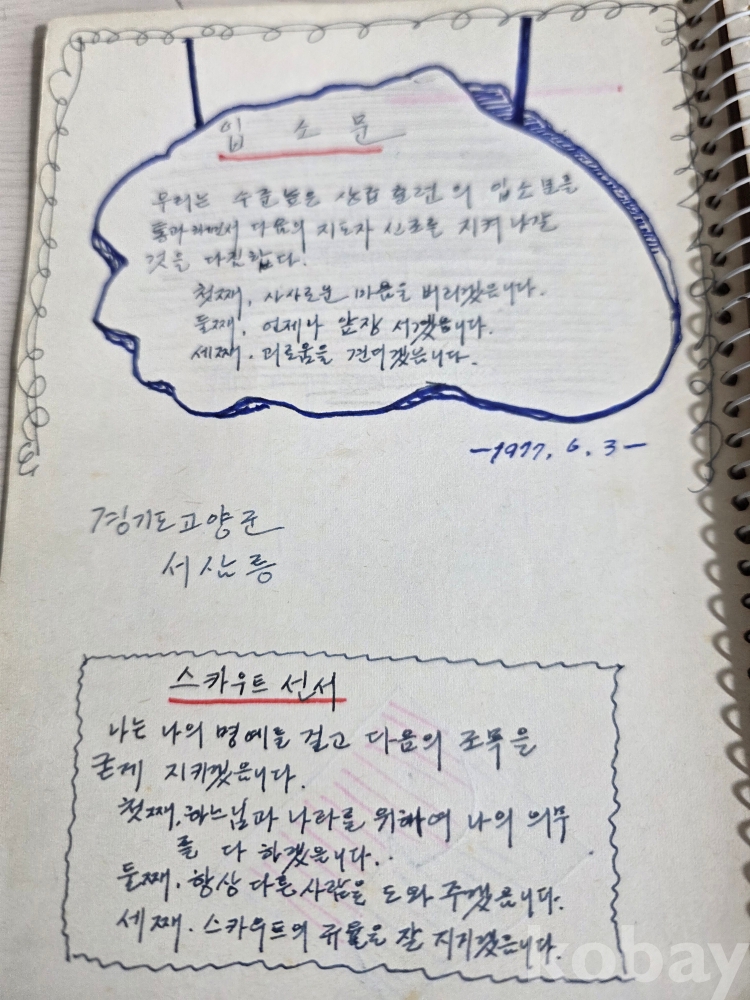 입 소 문
우리는 수준높은 상급 훈련의 입소문을
통과하면서 다음의 지도자 신조를 지켜 나갈
것을 다짐한다.
첫째, 사사로운 마음을 버리겠읍니다.
둘째, 언제나 앞장 서겠읍니다.
세째. 괴로움을 견디겠읍니다.
-1977. 6. 3-
경기도 고양군
서삼릉
스카우트 선서
나는 나의 명예를 걸고 다음의 조목을
굳게 지키겠읍니다.
첫째, 하느님과 나라를 위하여 나의 의무
를 다 하겠읍니다..
둘째. 항상 다른 사람을 도와 주겠읍니다.
세째. 스카우트의 규율을 잘 지키겠읍니다.
kobay